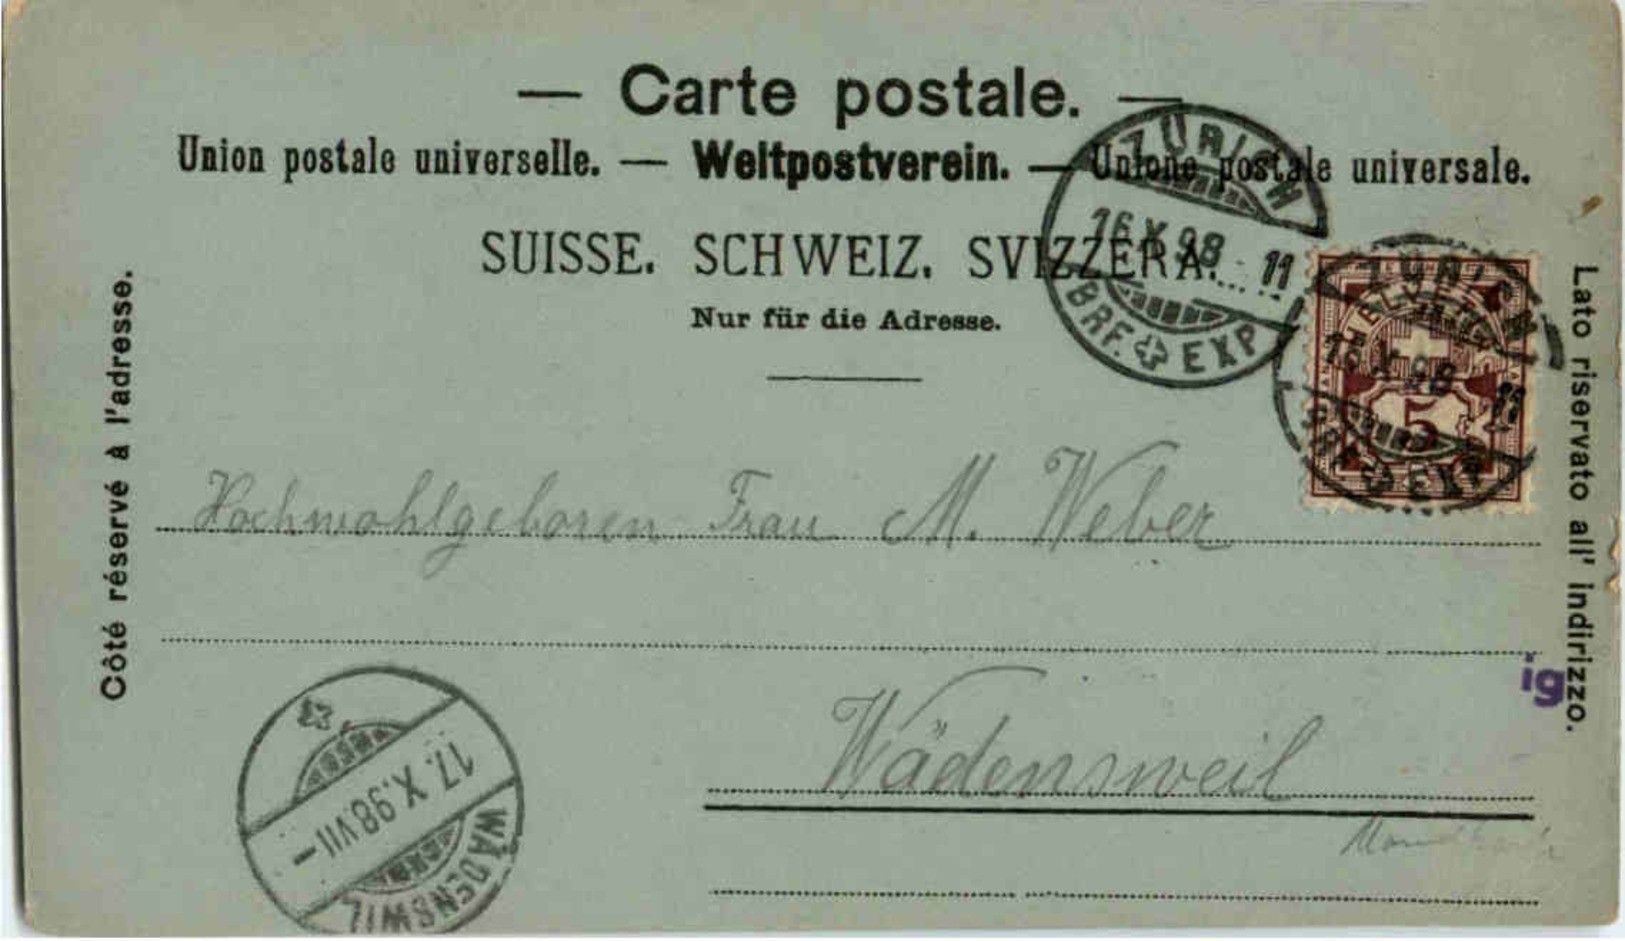 — Carte postale. —
Union postale universelle. — Weltpostverein. — Unione postale universale.
SUISSE. SCHWEIZ. SVIZZERA.
Nur für die Adresse.
Côté réservé à l'adresse.
Lato riservato all' indirizzo.
ZÜRICH
16 X 98 11
BRF. EXP.
ZÜRICH
16 X 98 11
BRF. EXP.
HELVETIA
5
Hochwohlgeboren Frau M. Weber
Wädensweil
ig
17. X. 98. VII –
WÄDENSWIL